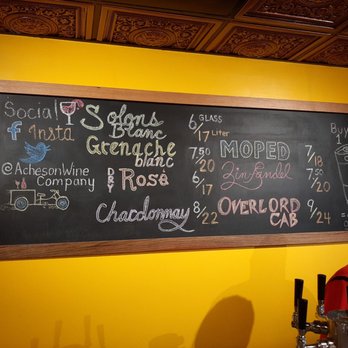 Social
f Insta
@AchesonWine
Company
Solons
Blanc
6 GLASS
/17 Liter
Grenache
blanc
7.50
/20
DRY Rosé
6
/17
Chardonnay
8/22
MOPED
7/18
Zinfandel
7.50
/20
OVERLORD
CAB
9/24
Buy